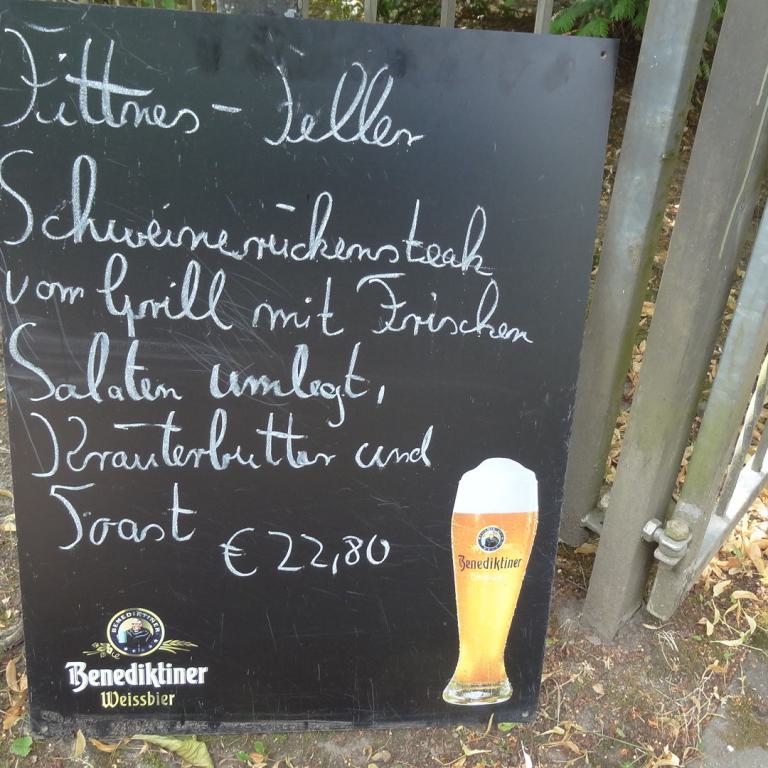 Fittnes - Teller
Schweinerückensteak
vom Grill mit Frischen
Salaten umlegt,
Kräuterbutter und
Toast
€ 22,80
Benediktiner
BENEDIKTINER
Benediktiner
Weissbier